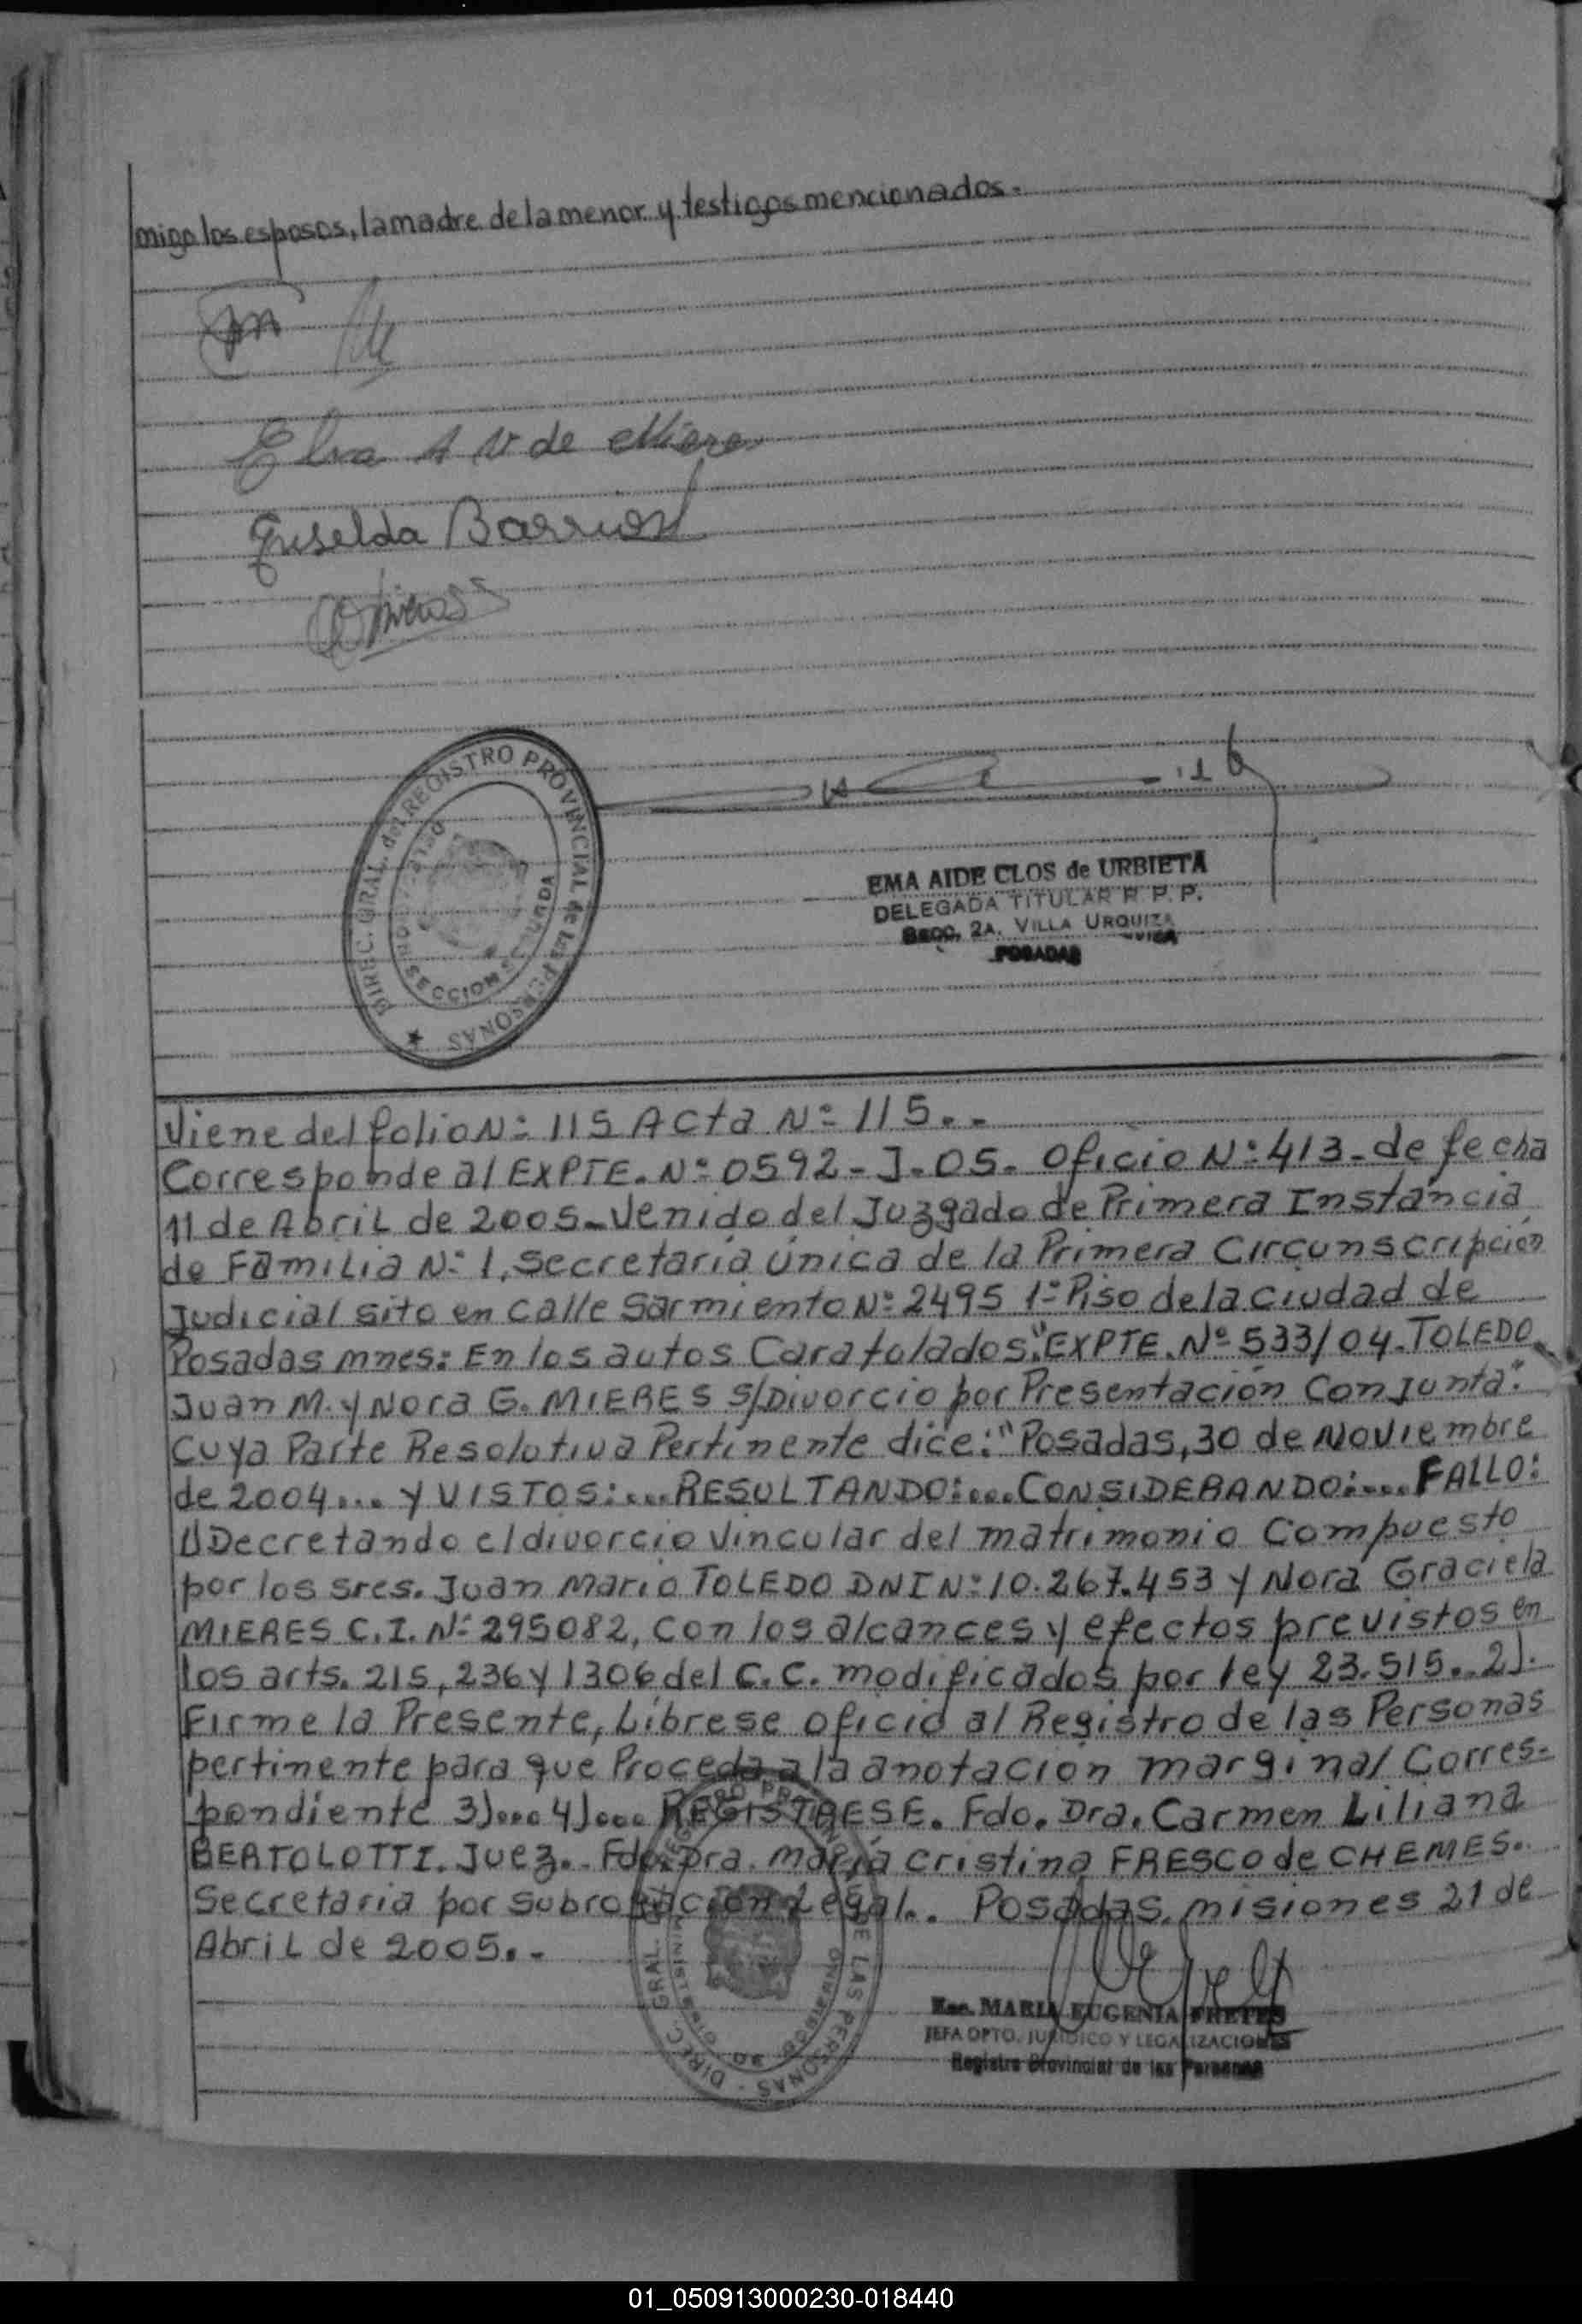 migo los esposos, la madre de la menor y testigos mencionados.
Elva A V de Mieres
Griselda Barrios
DIREC. GRAL. del REGISTRO PROVINCIAL de las PERSONAS
SECCION SEGUNDA
EMA AIDE CLOS de URBIETA
DELEGADA TITULAR R. P. P.
Secc. 2A. VILLA URQUIZA
POSADAS
Viene del folio Nº 115 Acta Nº 115..
Corresponde al EXPTE. Nº 0592-J-05. Oficio Nº 413- de fecha
11 de Abril de 2005- Venido del Juzgado de Primera Instancia
de Familia Nº 1, Secretaría Única de la Primera Circunscripción
Judicial sito en calle Sarmiento Nº 2495 1º Piso de la ciudad de
Posadas mnes: En los autos Caratulados "EXPTE. Nº 533/04. TOLEDO
Juan M. y Nora G. MIERES S/Divorcio por Presentación Conjunta".
Cuya Parte Resolutiva Pertinente dice: "Posadas, 30 de Noviembre
de 2004... y VISTOS:... RESULTANDO:... CONSIDERANDO:.... FALLO:
1) Decretando el divorcio Vincular del matrimonio Compuesto
por los sres. Juan Mario TOLEDO DNI Nº 10.267.453 y Nora Graciela
MIERES C.I. Nº 295082, con los alcances y efectos previstos en
los arts. 215, 236 y 1306 del C.C. modificados por ley 23.515.. 2).
Firme la Presente, Líbrese oficio al Registro de las Personas
pertinente para que Proceda a la anotación marginal Corres-
pondiente 3).... 4).... REGISTRESE. Fdo. Dra. Carmen Liliana
BERTOLOTTI. Juez.. Fdo. Dra. María Cristina FRESCO de CHEMES.
Secretaria por subrogación Legal.. Posadas, misiones 21 de
Abril de 2005..
DIREC. GRAL. REGISTRO PROVINCIAL DE LAS PERSONAS
Esc. MARIA EUGENIA FRETES
JEFA DPTO. JURIDICO Y LEGALIZACIONES
Registro Provincial de las Personas
01_050913000230-018440